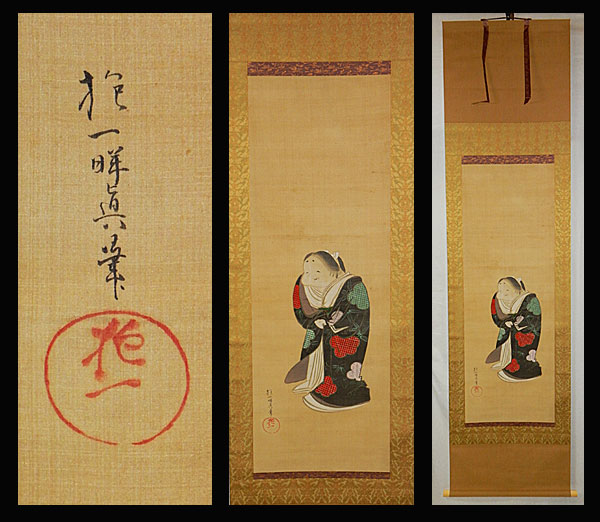 抱一暉真筆
抱一